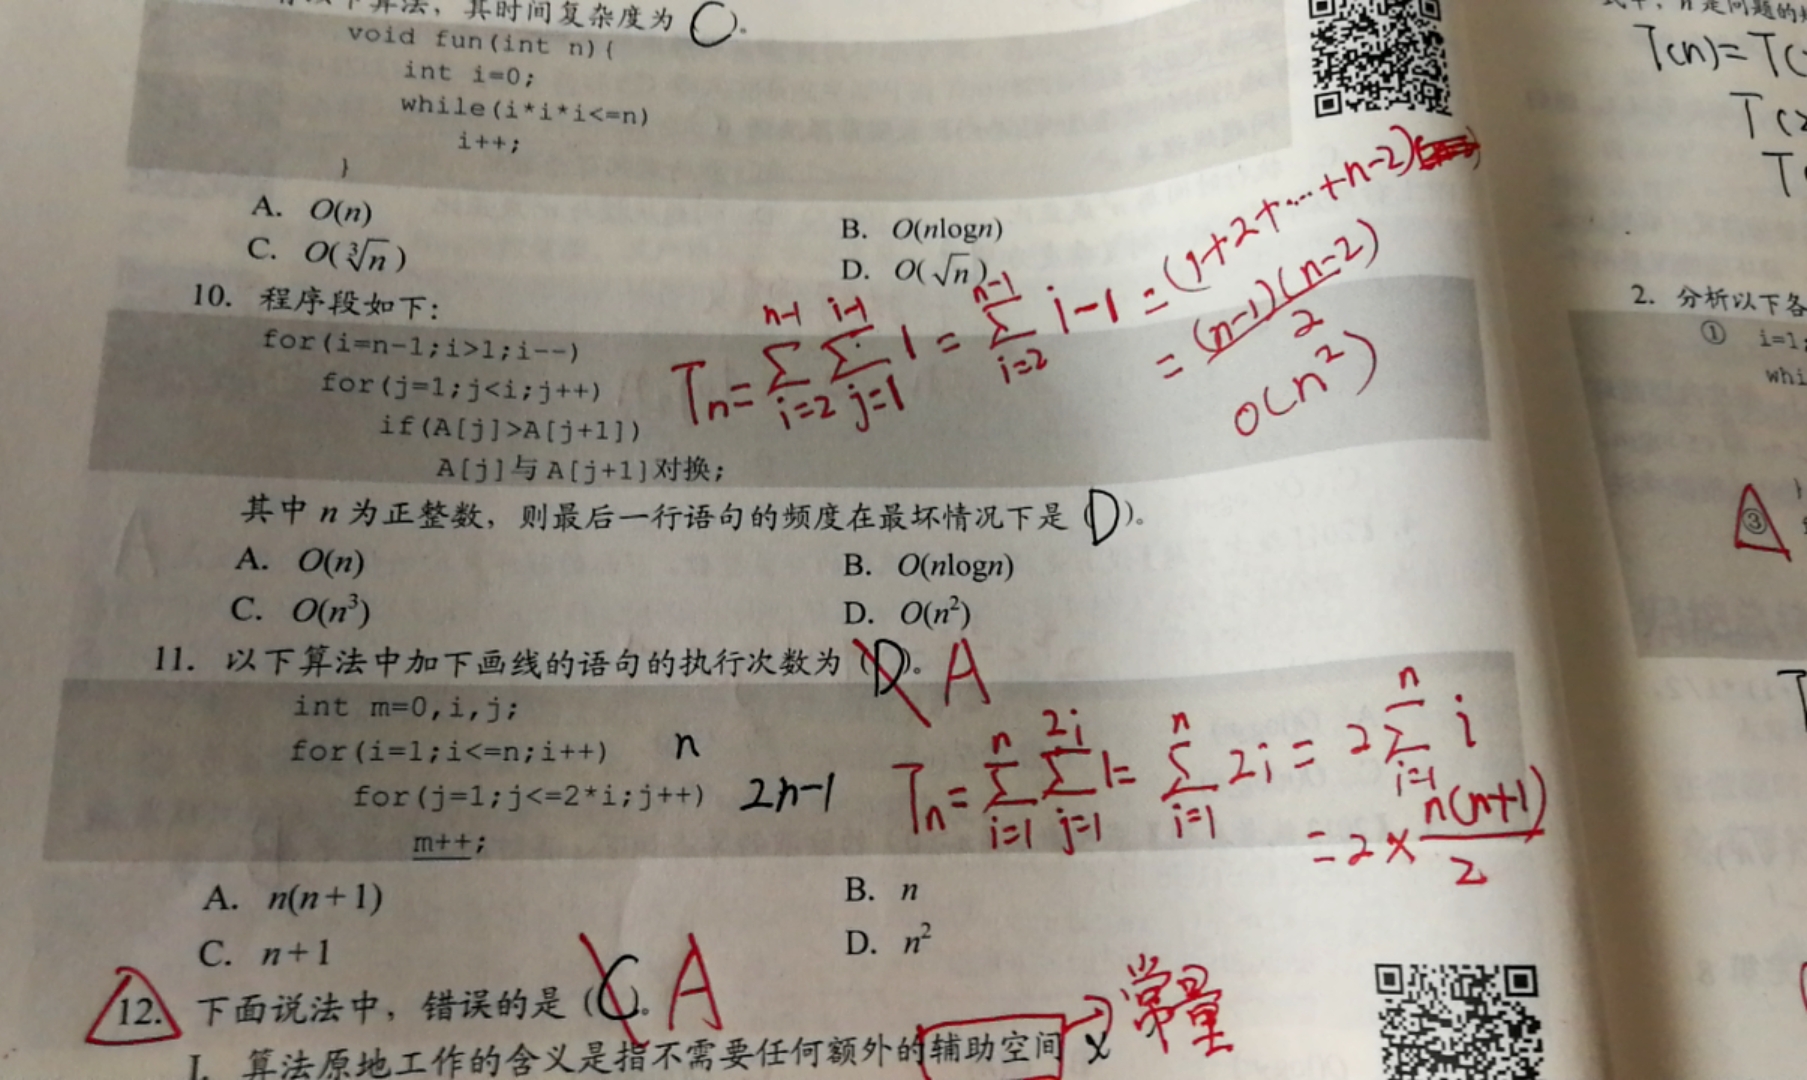 算法，其时间复杂度为 C。
void fun(int n){
int i=0;
while(i*i*i<=n)
i++;
}
A. O(n)
B. O(nlogn)
C. O(∛n)
D. O(√n)
10. 程序段如下：
for(i=n-1;i>1;i--)
for(j=1;j<i;j++)
if(A[j]>A[j+1])
A[j]与A[j+1]对换;
Tn=∑_{i=2}^{n-1}∑_{j=1}^{i-1}1=∑_{i=2}^{n-1}i-1=(1+2+…+n-2)
=(n-1)(n-2)/2
O(n²)
其中 n 为正整数，则最后一行语句的频度在最坏情况下是（D）。
A. O(n)
B. O(nlogn)
C. O(n³)
D. O(n²)
11. 以下算法中加下画线的语句的执行次数为（D）。A
int m=0,i,j;
for(i=1;i<=n;i++) n
for(j=1;j<=2*i;j++) 2n-1
m++;
Tn=∑_{i=1}^{n}∑_{j=1}^{2i}1=∑_{i=1}^{n}2i=2∑_{i=1}^{n}i
=2×n(n+1)/2
A. n(n+1)
B. n
C. n+1
D. n²
12. 下面说法中，错误的是（C）。A
I. 算法原地工作的含义是指不需要任何额外的辅助空间 × 常量
T(n)=T(
T(
T(
2. 分析以下各
① i=1;
whi
③